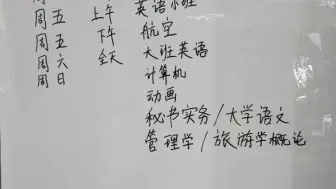 周五 上午 英语小班
周五 下午 航空
周六 全天 大班英语
周日 计算机
动画
秘书实务/大学语文
管理学/旅游学概论